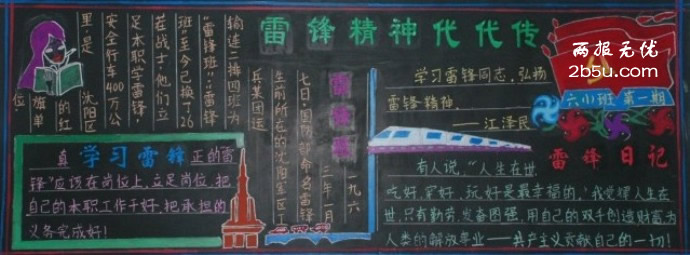 雷锋精神代代传
两报无优
2b5u.com
六(1)班 第一期
学习雷锋同志,弘扬
雷锋精神
——江泽民
一九六
三年一月
七日,国防部命名雷锋
生前所在的沈阳军区工
兵某团运
输连二排四班为
"雷锋班"."雷锋
班"至今已换了26
茬战士,他们立
足本职学雷锋
安全行车400万公
里,是沈阳区
的红
旗单
位.
真 学习雷锋 正的雷
锋"应该在岗位上,立足岗位,把
自己的本职工作干好,把承担的
义务完成好!
雷锋日记
有人说,"人生在世,
吃好,穿好,玩好是最幸福的.'我觉得人生在
世,只有勤劳,发奋图强,用自己的双手创造财富为
人类的解放事业——共产主义贡献自己的一切!